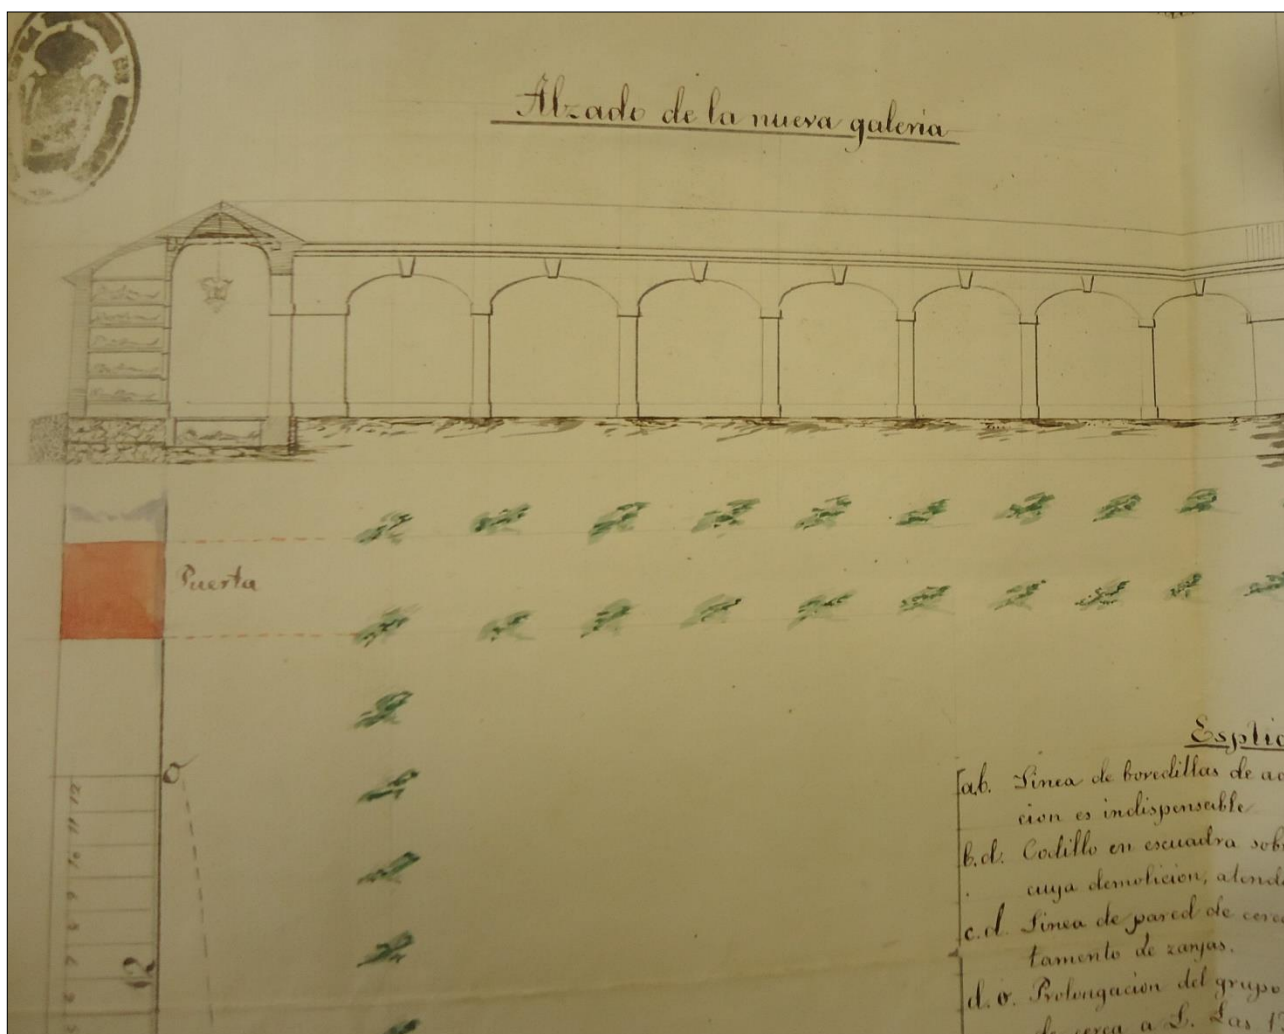 Alzado de la nueva galeria
Puerta
a
12
11
2
Esplic
a.b. Linea de bovedillas de ac
cion es indispensable
b.d. Codillo en escuadra sobr
cuya demolicion, atend
c.d. Linea de pared de cerc
tamento de zanjas.
d.o. Prolongacion del grupo
de cerca a L. Las